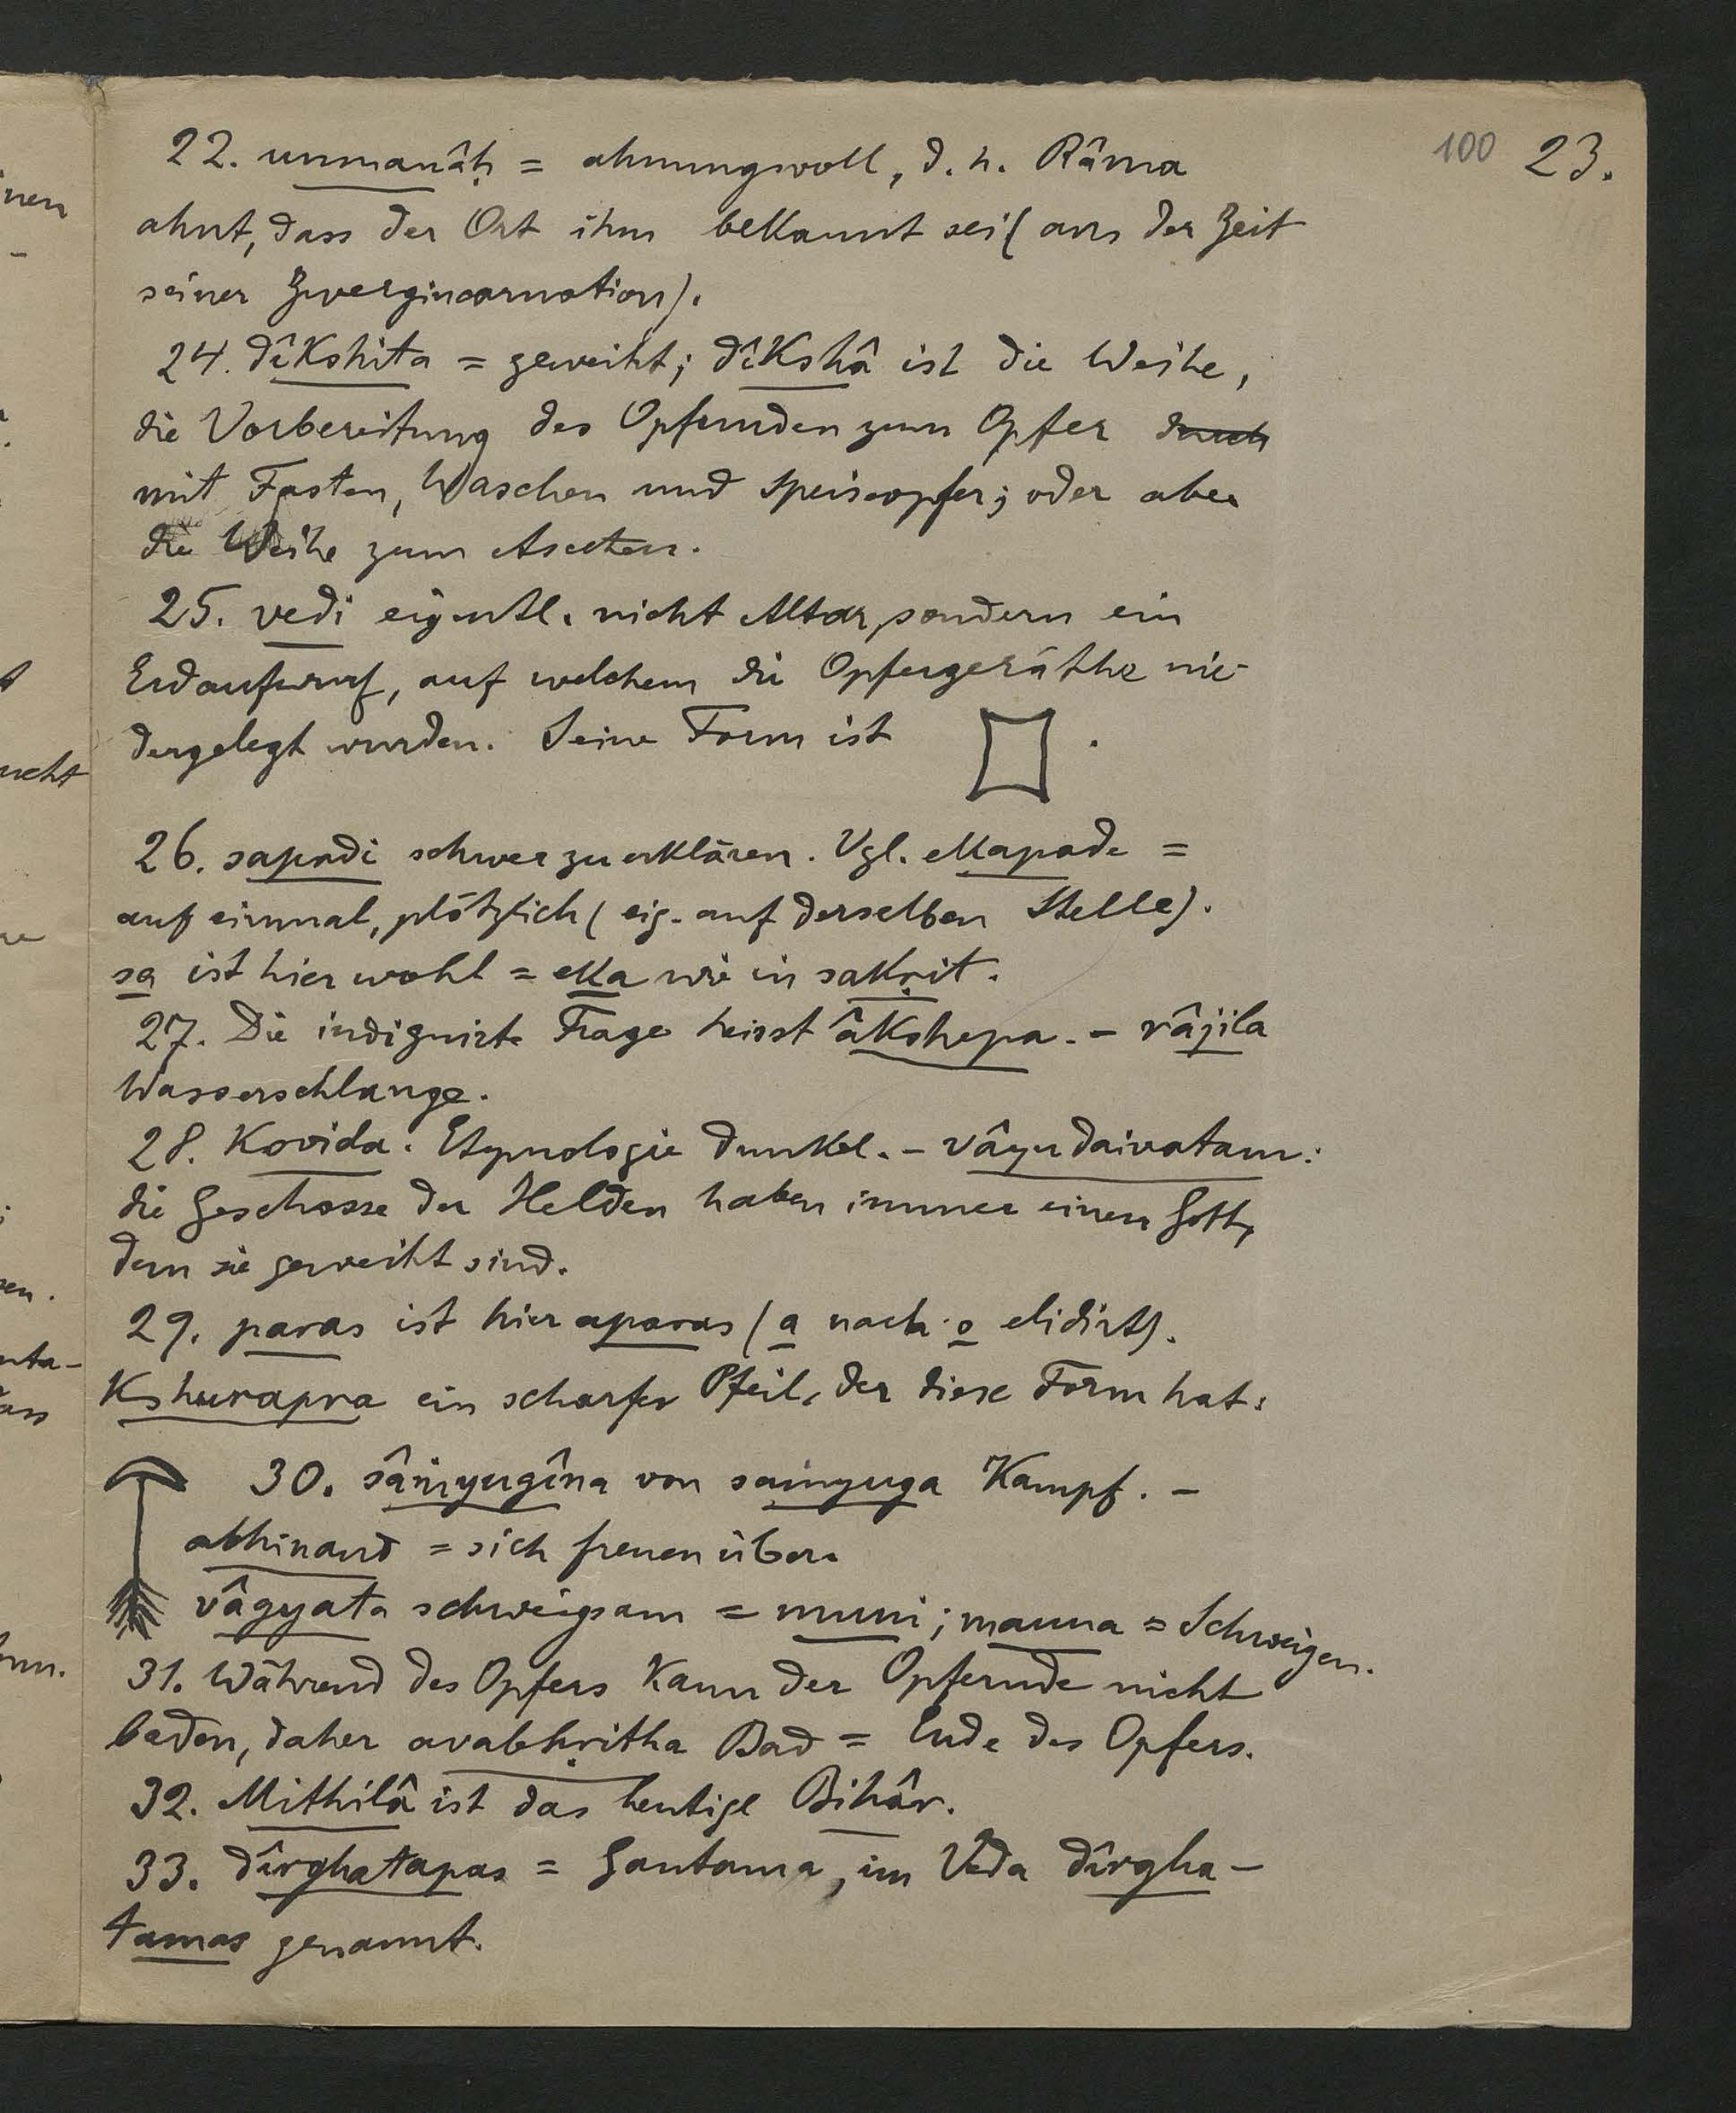 100 23.
22. unmanâḥ = ahnungsvoll, d. h. Râma
ahnt, dass der Ort ihm bekannt sei (aus der Zeit
seiner Zwergincarnation).
24. dîkshita = geweiht; dîkshâ ist die Weihe,
die Vorbereitung des Opfernden zum Opfer durch
mit Fasten, Waschen und Speiseopfer; oder aber
die Weihe zum Asceten.
25. vedi eigentl. nicht Altar, sondern ein
Erdaufwurf, auf welchem die Opfergeräthe nie-
dergelegt wurden. Seine Form ist .
26. sapadi schwer zu erklären. Vgl. ekapade =
auf einmal, plötzlich (eig. auf derselben Stelle).
sa ist hier wohl = eka wie in sakṛit.
27. Die indignirte Frage heisst âkshepa. – râjila
Wasserschlange.
28. Kovida. Etymologie dunkel. – vâyudaivatam:
die Geschosse der Helden haben immer einen Gott,
dem sie geweiht sind.
29. paras ist hier aparas (a nach o elidirt).
Kshurapra ein scharfer Pfeil, der diese Form hat:
30. sâṁyugîna von saṁyuga Kampf. –
abhinand = sich freuen über.
vâgyata schweigsam = muni; mauna = Schweigen.
31. Während des Opfers kann der Opfernde nicht
baden, daher avabhṛitha Bad = Ende des Opfers.
32. Mithilâ ist das heutige Bihâr.
33. dîrghatapas = Gautama, im Veda dîrgha-
tamas genannt.